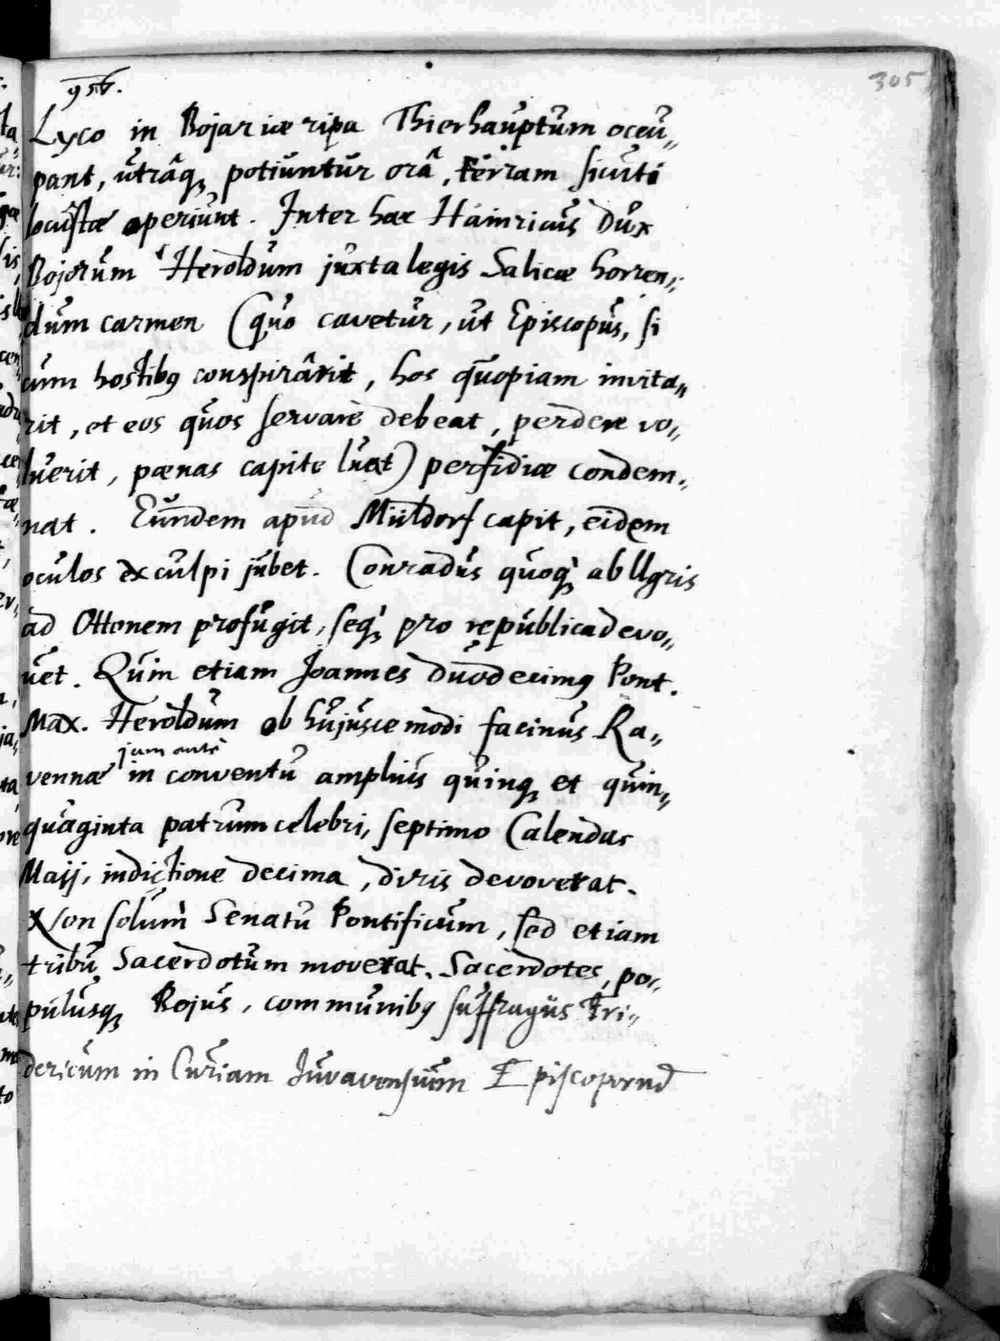 305
956.
Lyco in Bojaricæ ripa Thierhauptum occu„
pant, utrâq; potiuntur orâ, terram sicuti
locustæ operiunt. Inter hæc Hainricus Dux
Bojorum Heroldum juxta legis Salicæ horren„
dum carmen (quo cavetur, ut Episcopus, si
cum hostibus conspirârit, hos quopiam invita„
rit, et eos quos servare debeat, perdere vo„
luerit, pænas capite luat) perfidiæ condem„
nat. Eundem apud Müldorf capit, eidem
oculos exculpi jubet. Conradus quoq; ab Ugris
ad Ottonem profugit, seq; pro republica devo„
vet. Quin etiam Joannes duodecimus Pont.
Max. Heroldum ob hujuscemodi facinus Ra„
jam ante
vennæ in conventu amplius quinq; et quin„
quaginta patrum celebri, septimo Calendas
Maij, indictione decima, diris devoverat.
Non solum Senatu Pontificum, sed etiam
tribu Sacerdotum moverat. Sacerdotes, po„
pulusq; Bojus, communibus suffragiis Fri„
dericum in Curiam Juvavensium Episcoporum